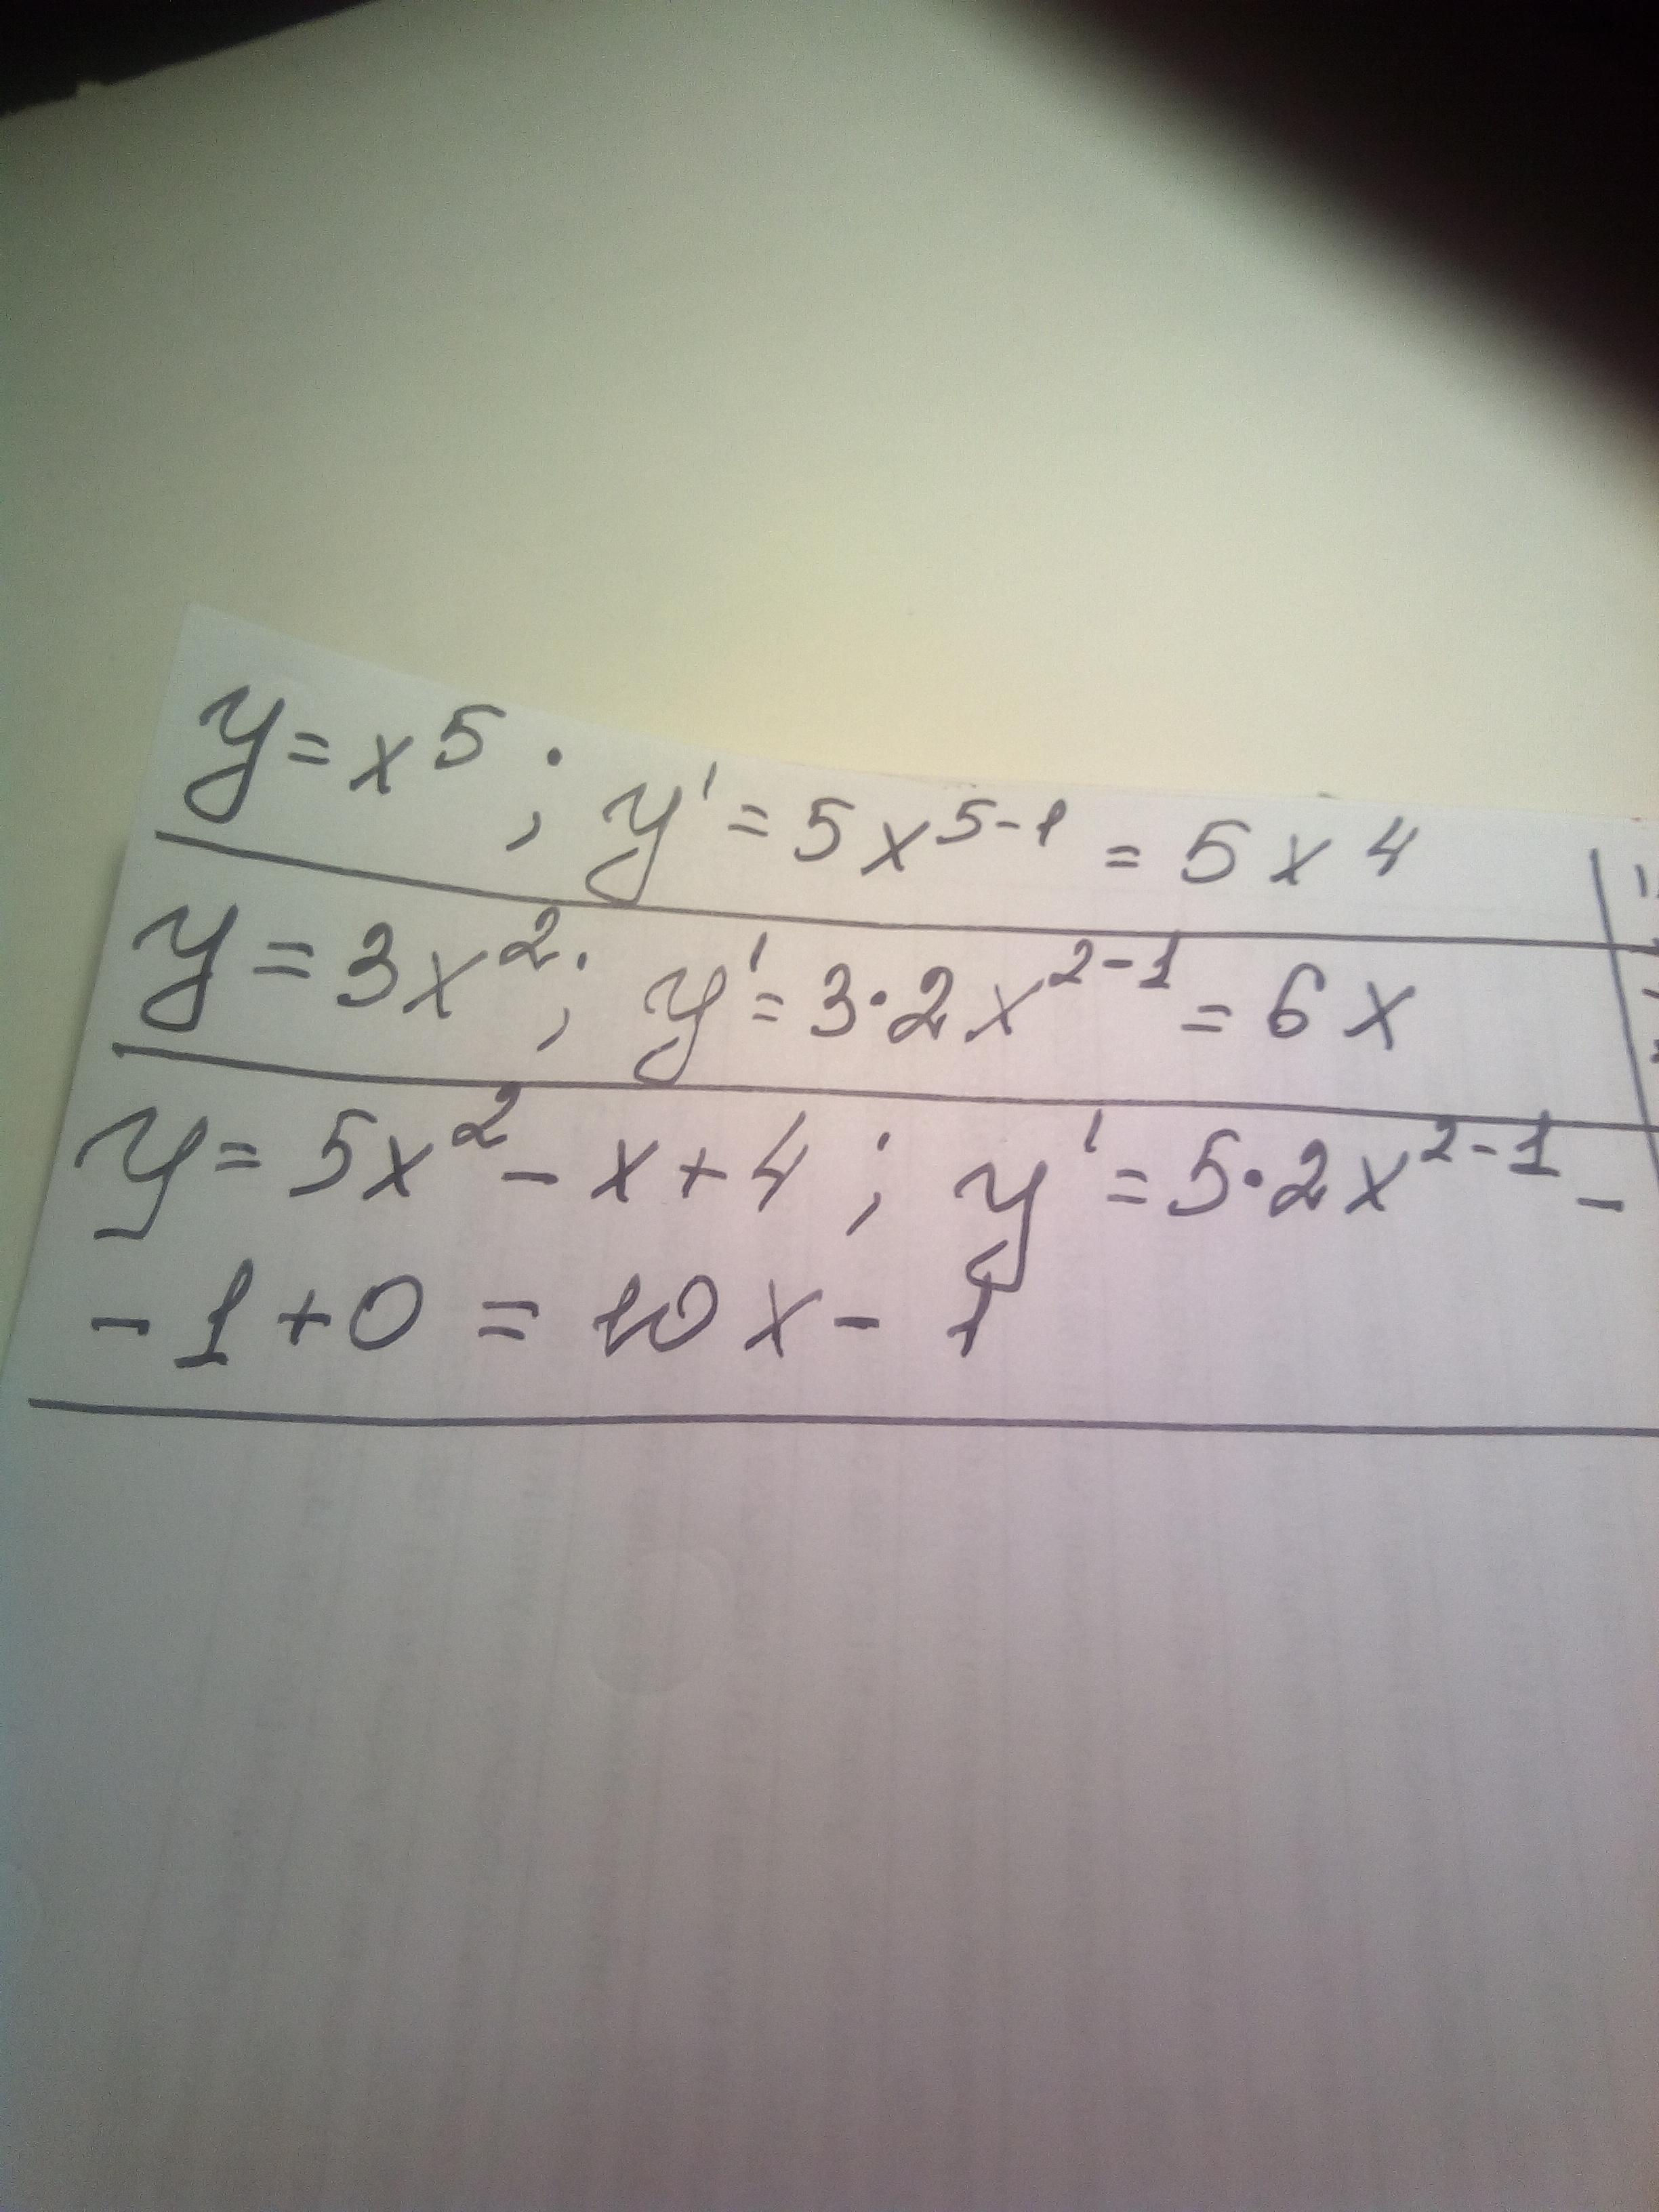 y = x⁵; y' = 5x⁵⁻¹ = 5x⁴
y = 3x²; y' = 3·2x²⁻¹ = 6x
y = 5x² - x + 4; y' = 5·2x²⁻¹ -
- 1 + 0 = 10x - 1